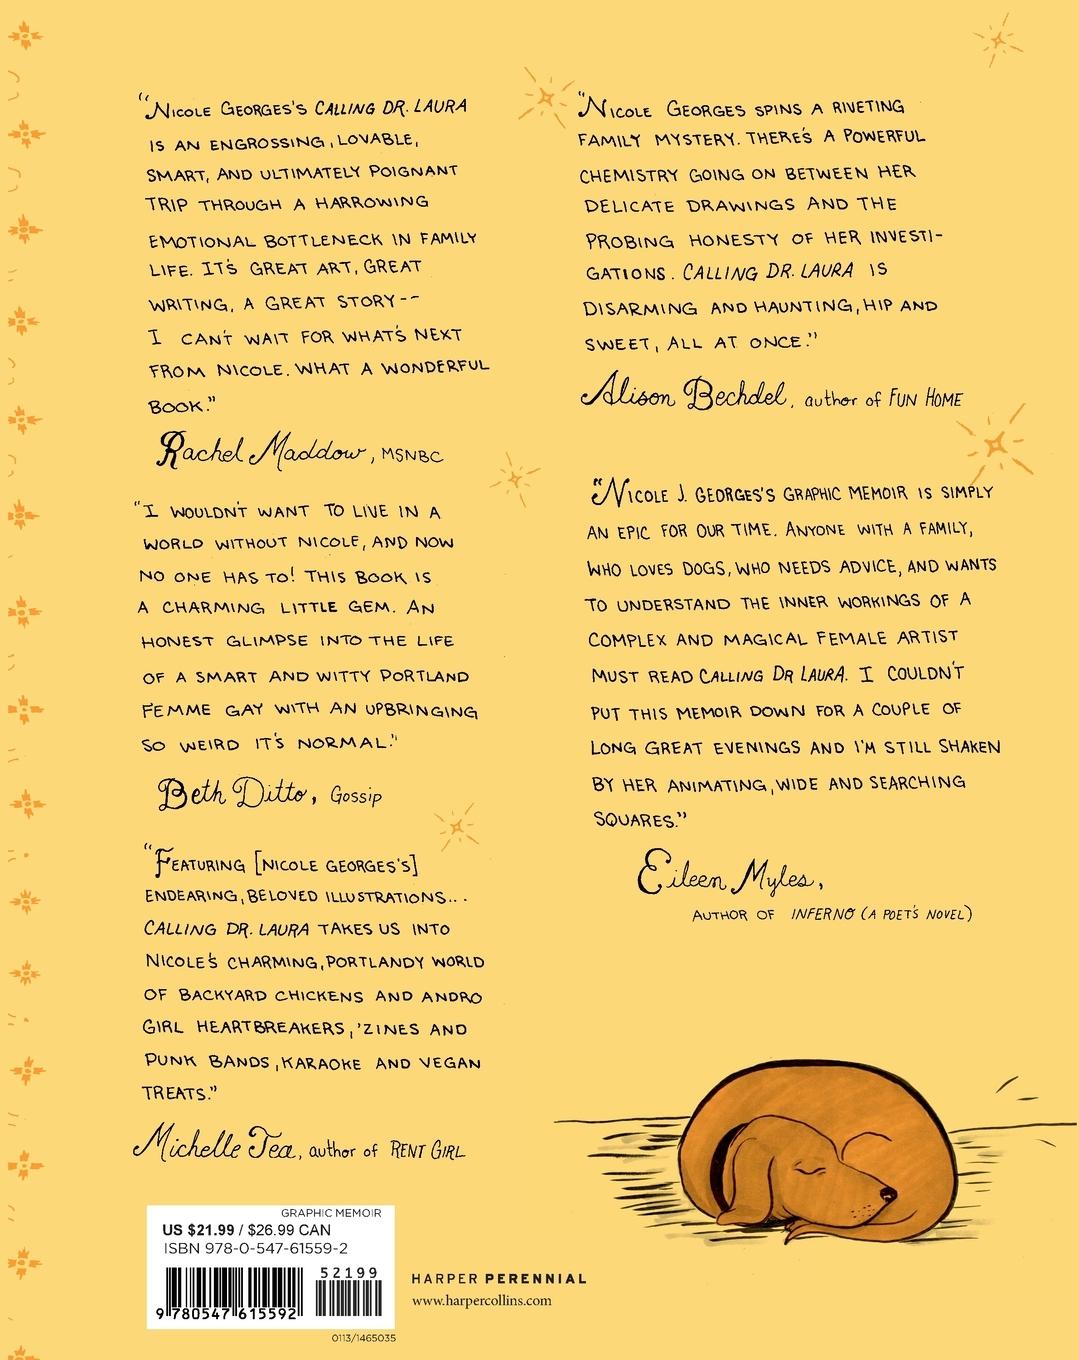 "NICOLE GEORGES'S CALLING DR. LAURA
IS AN ENGROSSING, LOVABLE,
SMART, AND ULTIMATELY POIGNANT
TRIP THROUGH A HARROWING
EMOTIONAL BOTTLENECK IN FAMILY
LIFE. IT'S GREAT ART, GREAT
WRITING, A GREAT STORY--
I CAN'T WAIT FOR WHAT'S NEXT
FROM NICOLE. WHAT A WONDERFUL
BOOK."
Rachel Maddow, MSNBC
"I WOULDN'T WANT TO LIVE IN A
WORLD WITHOUT NICOLE, AND NOW
NO ONE HAS TO! THIS BOOK IS
A CHARMING LITTLE GEM. AN
HONEST GLIMPSE INTO THE LIFE
OF A SMART AND WITTY PORTLAND
FEMME GAY WITH AN UPBRINGING
SO WEIRD IT'S NORMAL."
Beth Ditto, GOSSIP
"FEATURING [NICOLE GEORGES'S]
ENDEARING, BELOVED ILLUSTRATIONS...
CALLING DR. LAURA TAKES US INTO
NICOLE'S CHARMING, PORTLANDY WORLD
OF BACKYARD CHICKENS AND ANDRO
GIRL HEARTBREAKERS, 'ZINES AND
PUNK BANDS, KARAOKE AND VEGAN
TREATS."
Michelle Tea, author of RENT GIRL
"NICOLE GEORGES SPINS A RIVETING
FAMILY MYSTERY. THERE'S A POWERFUL
CHEMISTRY GOING ON BETWEEN HER
DELICATE DRAWINGS AND THE
PROBING HONESTY OF HER INVESTI-
GATIONS. CALLING DR. LAURA IS
DISARMING AND HAUNTING, HIP AND
SWEET, ALL AT ONCE."
Alison Bechdel, author of FUN HOME
"NICOLE J. GEORGES'S GRAPHIC MEMOIR IS SIMPLY
AN EPIC FOR OUR TIME. ANYONE WITH A FAMILY,
WHO LOVES DOGS, WHO NEEDS ADVICE, AND WANTS
TO UNDERSTAND THE INNER WORKINGS OF A
COMPLEX AND MAGICAL FEMALE ARTIST
MUST READ CALLING DR LAURA. I COULDN'T
PUT THIS MEMOIR DOWN FOR A COUPLE OF
LONG GREAT EVENINGS AND I'M STILL SHAKEN
BY HER ANIMATING, WIDE AND SEARCHING
SQUARES."
Eileen Myles,
AUTHOR OF INFERNO (A POET'S NOVEL)
GRAPHIC MEMOIR
US $21.99 / $26.99 CAN
ISBN 978-0-547-61559-2
52199
9 780547 615592
0113/1465035
HARPER PERENNIAL
www.harpercollins.com